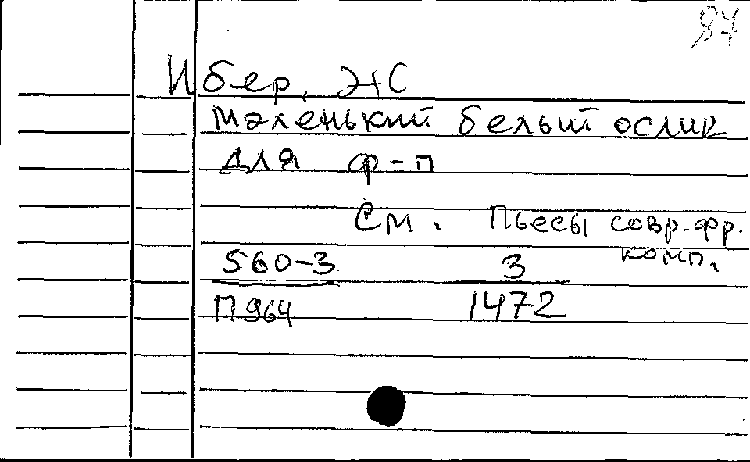 97
Ибер, Ж
Маленький белый ослик
для ф-п
См. Пьесы совр. фр.
комп.
560-3 3
П964 1472